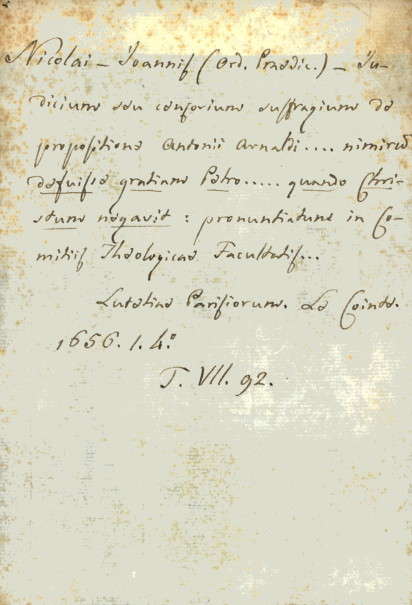 Nicolai – Joannis (Ord. Praedic.) – Ju-
dicium seu censorium suffragium de
propositione Antonii Arnaldi .... nimirum
defuisse gratiam Petro ..... quando Chri-
stum negavit : pronuntiatum in Co-
mitiis Theologicae Facultatis...
Lutetiae Parisiorum. Le Cointe.
1656. 1. 4.º
T. VII. 92.